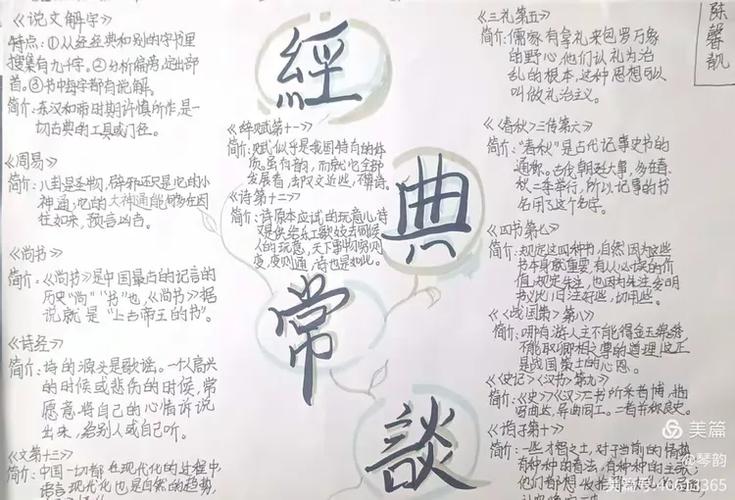 《说文解字》
特点：①从经经典和别的字书里
搜集有九千字。②分析偏旁，定出部
首。③书中每字都有说解。
简介：东汉和帝时期许慎所作，是一
切古典的工具或门径。
《周易》
简介：八卦是圣物，辟邪还只是它的小
神通，它的大神通能够
往如来，预言凶吉。
《尚书》
简介：《尚书》是中国最古的记言的
历史“尚”“书”也，《尚书》据
说就是“上古帝王的书”。
《诗经》
简介：诗的源头是歌谣。一个人高兴
的时候或悲伤的时候，常
愿意将自己的心情诉说
出来，给别人或自己听。
《文第十三》
简介：中国一切都在现代化的过程中，
语言现代化也是自然的趋势，
經
典
常
談
《辞赋第十一》
简介：赋似乎是我国特有的体
《诗第十二》
简介：诗原本应试的玩意儿，诗
又是供给乐工歌妓去
人的玩意，
变，变则通，诗也是如此。
《三礼第五》
简介：儒家有拿礼来包罗万象
的野心，他们认礼为治
乱的根本，这种思想可以
叫做礼治主义。
《春秋》三传第六》
简介：“春秋”是古代记事史书的
通称。古代朝廷大事，多在春、
秋二季举行，所以记事的书
名用了这个名字。
《四书第七》
简介：规定这四种书，自然因为这些
书本身就重要，有人人必读的价
值，规定朱注，也因为朱注发明
书义比旧注好些，切用些。
《战国策》第八》
简介：哪有游说人主不能得金玉锦绣
不能取卿相之尊的道理，这正
是战国策士的心恩。
《史记》《汉书》第九》
简介：《史》《汉》二书所采者博，
异曲同工。二者并称良史。
《诸子第十》
简介：一些才智之士，对于当前的情势
有种种的看法，有种种的主张，
他们都想
陈馨靓
美篇
@琴韵